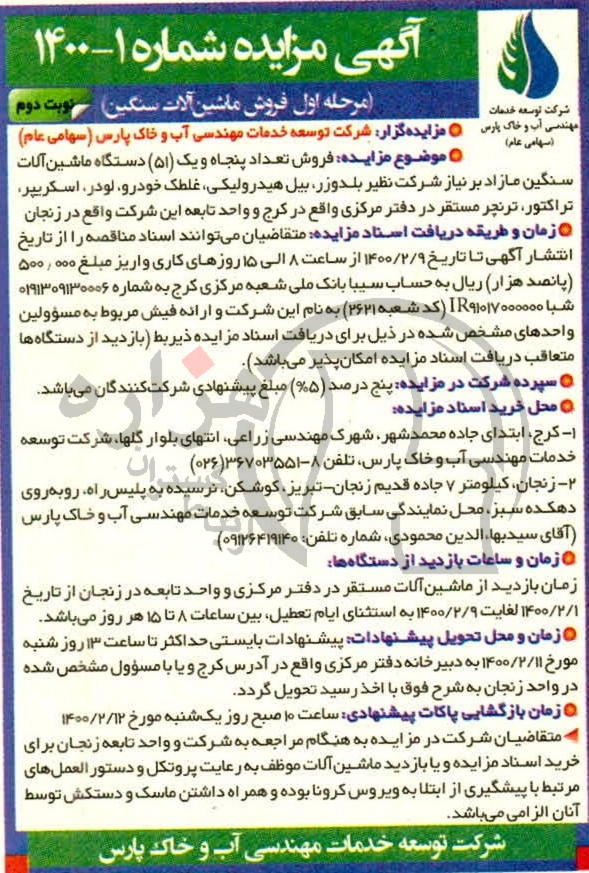 آگهی مزایده شماره ۱-۱۴۰۰
شرکت توسعه خدمات
مهندسی آب و خاک پارس
(سهامی عام)
(مرحله اول فروش ماشین‌آلات سنگین)
نوبت دوم
مزایده‌گزار: شرکت توسعه خدمات مهندسی آب و خاک پارس (سهامی عام)
موضوع مزایده: فروش تعداد پنجاه و یک (۵۱) دستگاه ماشین‌آلات
سنگین مازاد بر نیاز شرکت نظیر بلدوزر، بیل هیدرولیکی، غلطک خودرو، لودر، اسکریپر،
تراکتور، ترنچر مستقر در دفتر مرکزی واقع در کرج و واحد تابعه این شرکت واقع در زنجان
زمان و طریقه دریافت اسناد مزایده: متقاضیان می‌توانند اسناد مناقصه را از تاریخ
انتشار آگهی تا تاریخ ۱۴۰۰/۲/۹ از ساعت ۸ الی ۱۵ روزهای کاری و واریز مبلغ ۵۰۰,۰۰۰
(پانصد هزار) ریال به حساب سیبا بانک ملی شعبه مرکزی کرج به شماره ۰۱۹۱۳۰۹۱۳۰۰۰۶
شبا IR۹۱۰۱۷۰۰۰۰۰۰۰ (کد شعبه ۲۶۲۱) به نام این شرکت و ارائه فیش مربوط به مسؤولین
واحدهای مشخص شده در ذیل برای دریافت اسناد مزایده ذیربط (بازدید از دستگاه‌ها
متعاقب دریافت اسناد مزایده امکان‌پذیر می‌باشد).
سپرده شرکت در مزایده: پنج درصد (۵%) مبلغ پیشنهادی شرکت‌کنندگان می‌باشد.
محل خرید اسناد مزایده:
۱- کرج، ابتدای جاده محمدشهر، شهرک مهندسی زراعی، انتهای بلوار گلها، شرکت توسعه
خدمات مهندسی آب و خاک پارس، تلفن ۸-۳۶۷۰۳۵۵۱(۰۲۶)
۲- زنجان، کیلومتر ۷ جاده قدیم زنجان-تبریز، کوشکن، نرسیده به پلیس‌راه، روبه‌روی
دهکده سبز، محل نمایندگی سابق شرکت توسعه خدمات مهندسی آب و خاک پارس
(آقای سیدبهاءالدین محمودی، شماره تلفن: ۰۹۱۲۶۴۱۹۱۴۰)
زمان و ساعات بازدید از دستگاه‌ها:
زمان بازدید از ماشین‌آلات مستقر در دفتر مرکزی و واحد تابعه در زنجان از تاریخ
۱۴۰۰/۲/۱ لغایت ۱۴۰۰/۲/۹ به استثنای ایام تعطیل، بین ساعات ۸ تا ۱۵ هر روز می‌باشد.
زمان و محل تحویل پیشنهادات: پیشنهادات بایستی حداکثر تا ساعت ۱۳ روز شنبه
مورخ ۱۴۰۰/۲/۱۱ به دبیرخانه دفتر مرکزی واقع در آدرس کرج و یا با مسؤول مشخص شده
در واحد زنجان به شرح فوق با اخذ رسید تحویل گردد.
زمان بازگشایی پاکات پیشنهادی: ساعت ۱۰ صبح روز یک‌شنبه مورخ ۱۴۰۰/۲/۱۲
متقاضیان شرکت در مزایده به هنگام مراجعه به شرکت و واحد تابعه زنجان برای
خرید اسناد مزایده و یا بازدید ماشین‌آلات موظف به رعایت پروتکل و دستورالعمل‌های
مرتبط با پیشگیری از ابتلا به ویروس کرونا بوده و همراه داشتن ماسک و دستکش توسط
آنان الزامی می‌باشد.
شرکت توسعه خدمات مهندسی آب و خاک پارس
هزاره